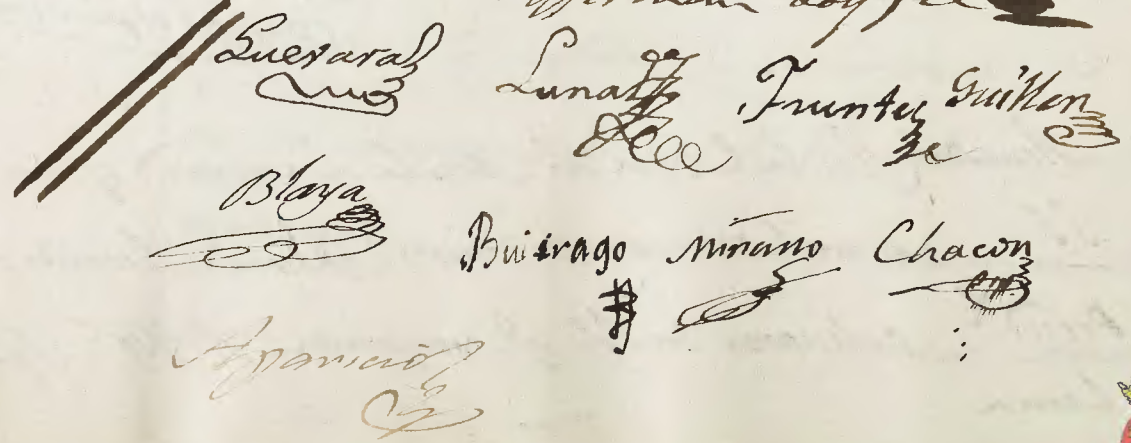 Guevara Luna Fuentes Guillen
Blaya Buitrago Miñano Chacon
Aparicio